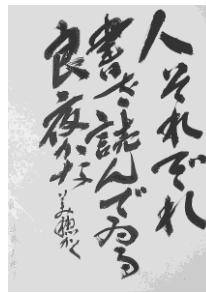 人それぞれ
書を読んでゐる
良夜かな